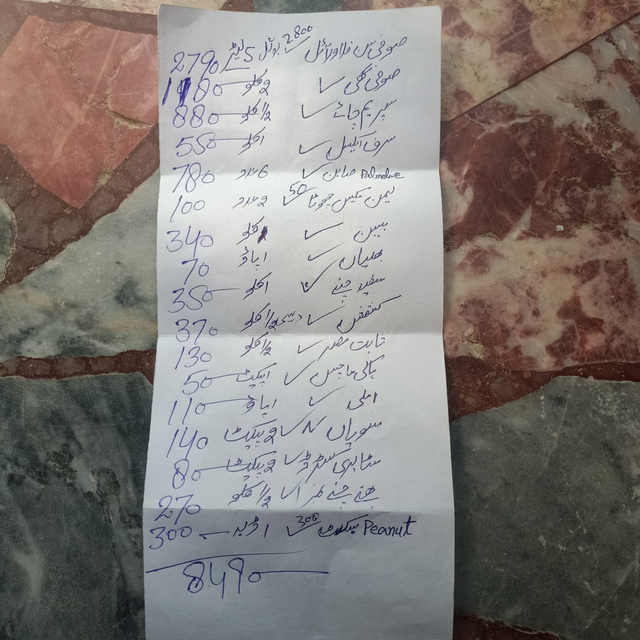 صوفی سن فلاور آئل 2800 بوتل 5 لیٹر 2790
صوفی گھی 2 کلو 1180
سپریم چائے 1/2 کلو 880
سرف ایکسل 1 کلو 550
Palmolive صابن 6 عدد 780
لیمن میکس چھوٹا 50 2 عدد 100
بیسن کلو 340
پھلیاں 1 پاؤ 70
سفید چنے 1 کلو 350
کشمش 1/2 کلو 370
ثابت مسور 1/2 کلو 130
ماچس 1 پیکٹ 50
املی 1 پاؤ 110
سویاں 2 پیکٹ 140
کسٹرڈ 2 پیکٹ 80
بھنے چنے 1/2 کلو 270
Peanut بسکٹ 300 1 ڈبہ 300
8490